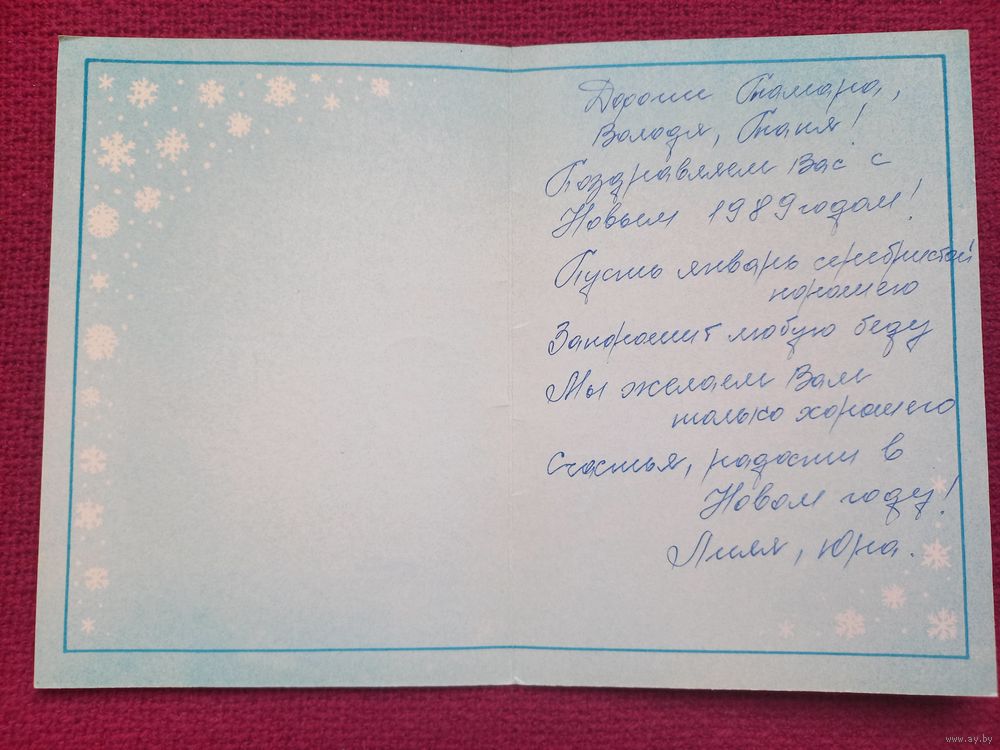 Дорогие Тамара,
Володя, Таня!
Поздравляем Вас с
Новым 1989 годом!
Пусть январь серебристой
порошею
Запорошит любую беду
Мы желаем Вам
только хорошего
Счастья, радости в
Новом году!
Лиля, Юра.
www.ay.by